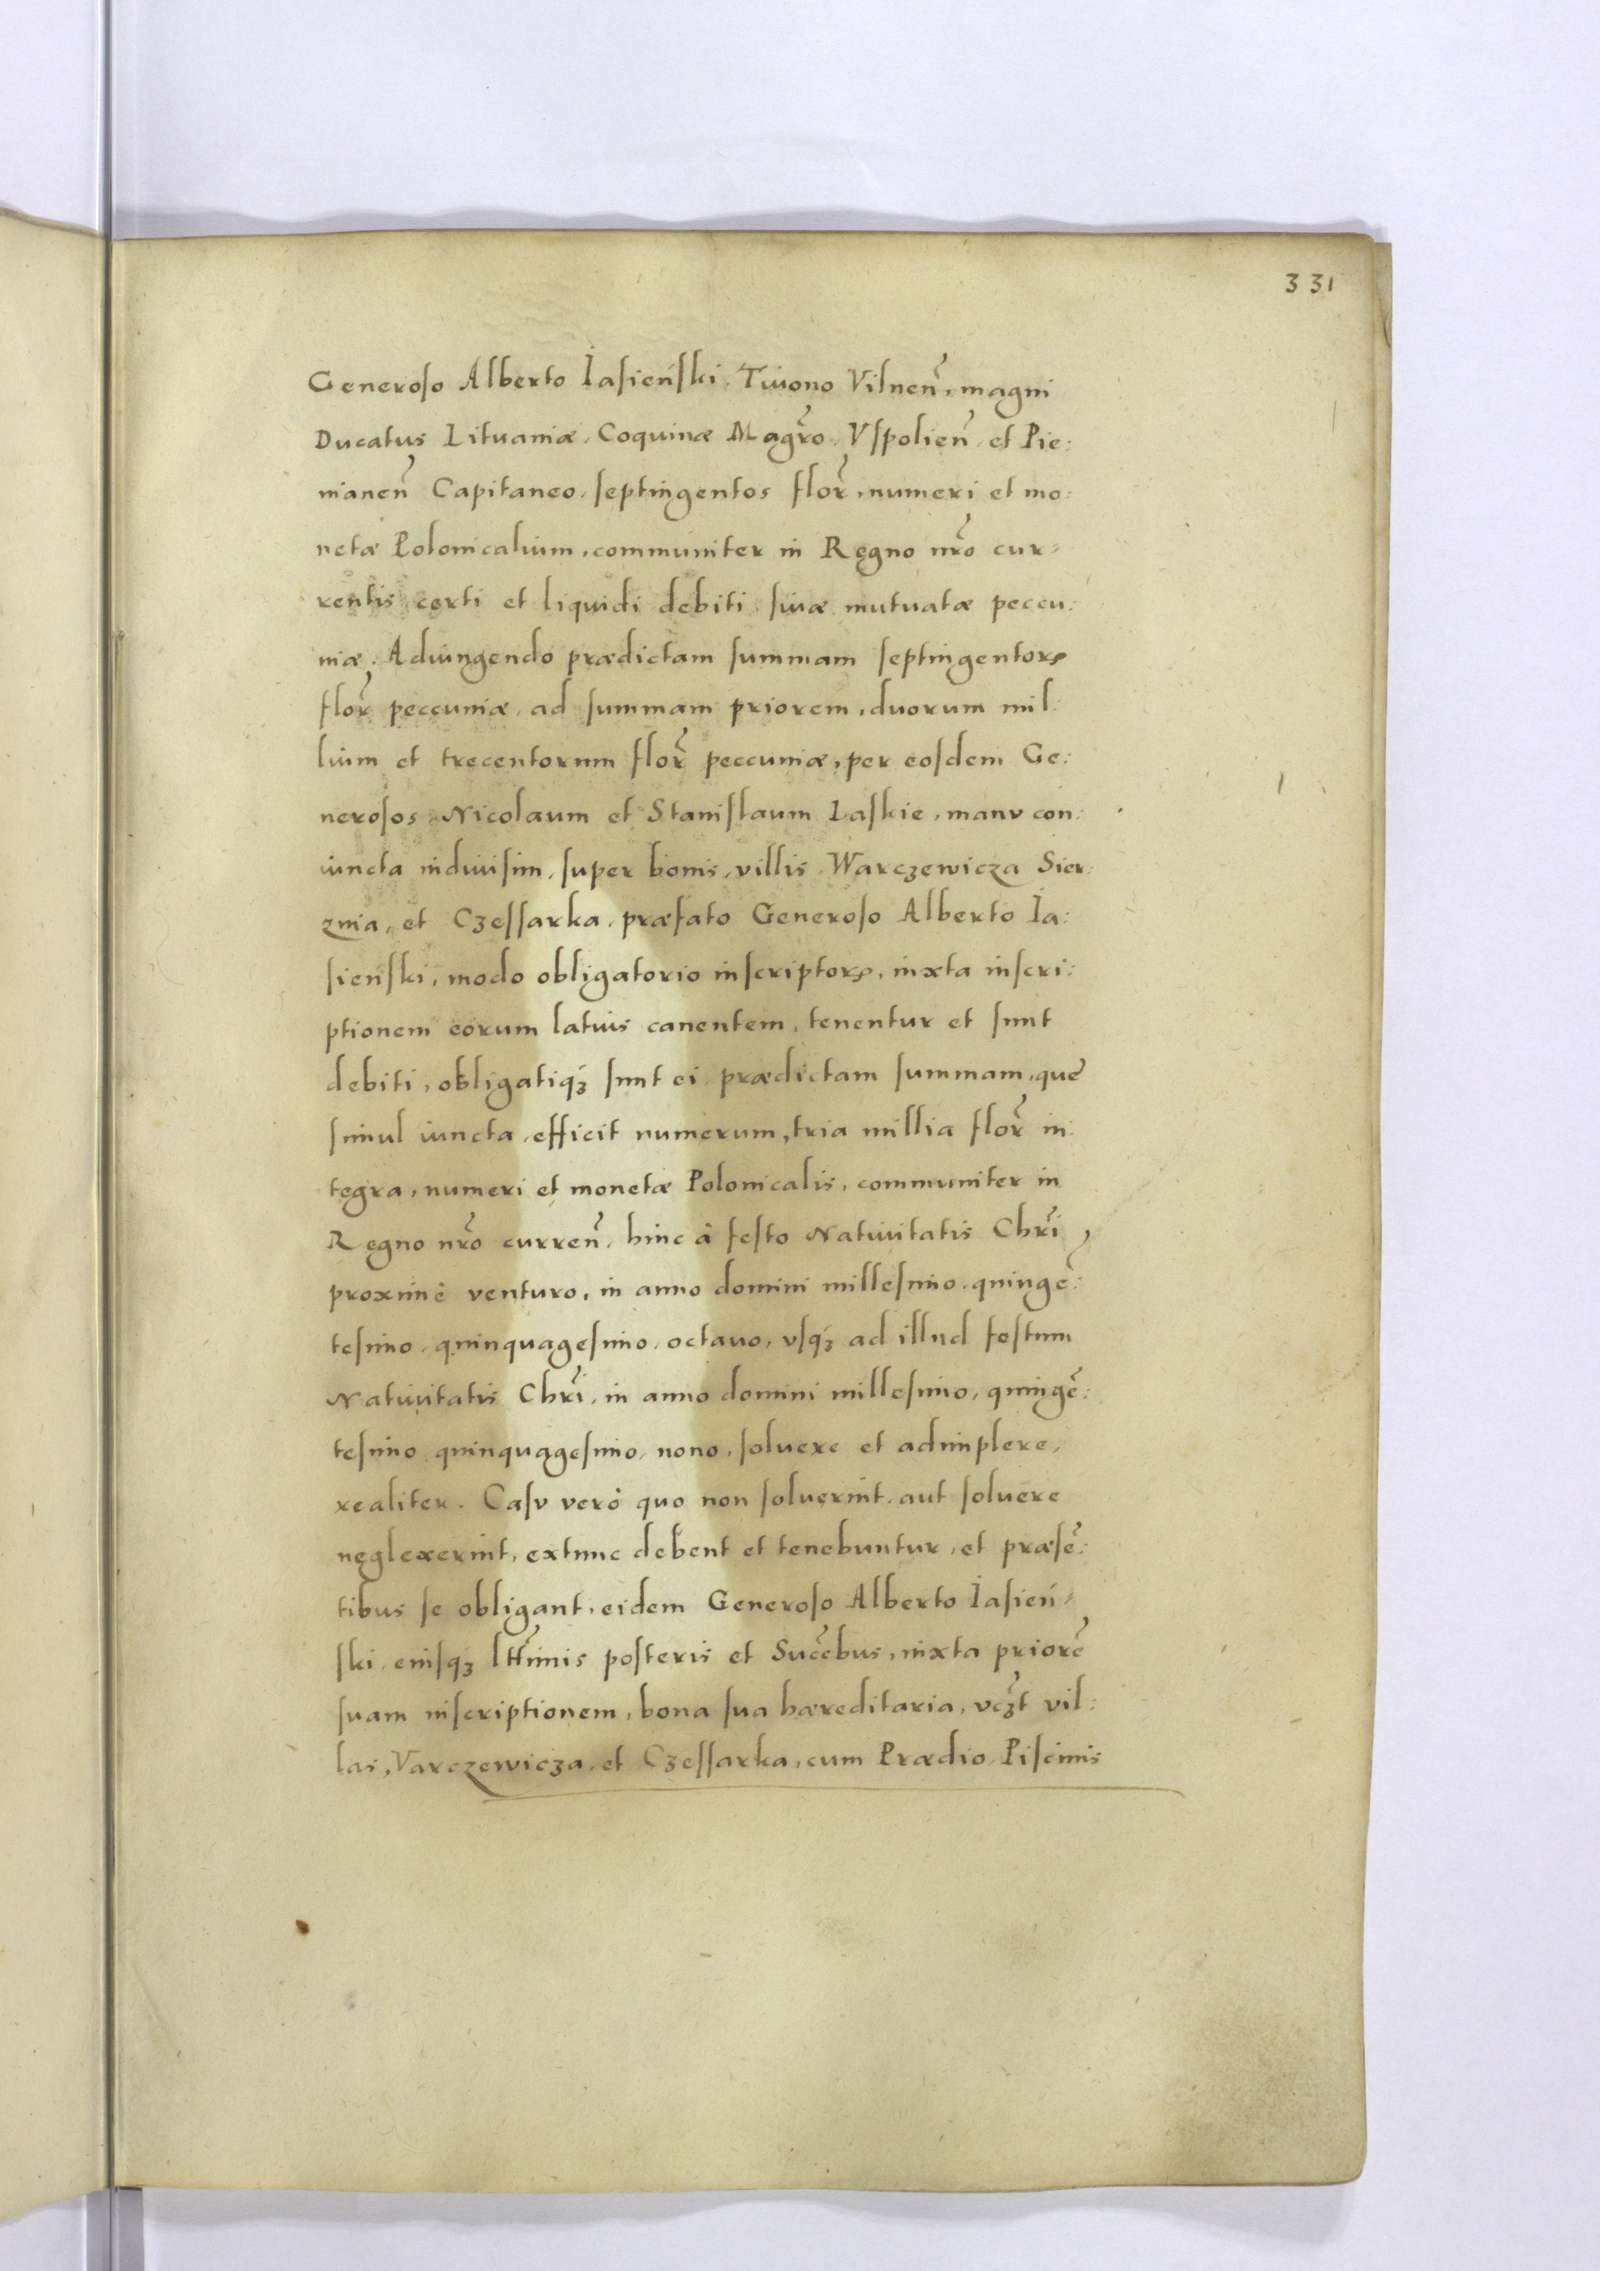 331
Generoso Alberto Iasieński, Tiuono Vilnen̄, magni
Ducatus Lituaniæ, Coquinæ Magr̄o, Vspolien̄, et Pie:
nianen̄ Capitaneo, septingentos flor̄, numeri et mo:
netæ Polonicalium, communiter in Regno nr̄o cur-
rentis certi et liquidi debiti, siuæ mutuatæ peccu:
niæ. Adiungendo prædictam summam septingentorꝝ
flor̄ peccuniæ, ad summam priorem, duorum mil:
lium et trecentorum flor̄ peccuniæ, per eosdem Ge:
nerosos Nicolaum et Stanislaum Laskie, manu con:
iuncta indiuisim, super bonis, villis Warczewicza Sier:
znia, et Czessarka, præfato Generoso Alberto Ia:
sieński, modo obligatorio inscriptorꝝ, iuxta inscri:
ptionem eorum latius canentem, tenentur et sunt
debiti, obligatiqꝫ sunt ei prædictam summam, que
simul iuncta, efficit numerum, tria millia flor̄ in:
tegra, numeri et monetæ Polonicalis, communiter in
Regno nr̄o curren̄, hinc à festo Natiuitatis Chr̄i
proximè venturo, in anno domini millesimo, quingē:
tesimo, quinquagesimo, octauo, vsqꝫ ad illud festum
Natiuitatis Chr̄i, in anno domini millesimo, quingē:
tesimo quinquagesimo, nono, soluere et adimplere,
realiter. Casu verò quo non soluerint, aut soluere
neglexerint, extunc debent et tenebuntur, et præsē:
tibus se obligant, eidem Generoso Alberto Iasień-
ski, eiusqꝫ ltt̄imis posteris et Succ̄bus, iuxta priorē
suam inscriptionem, bona sua hæreditaria, vcꝫt vil:
las, Varczewicza, et Czessarka, cum Prædio, Piscinis